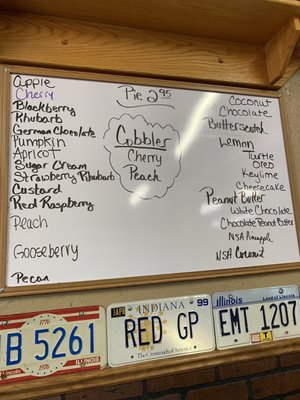 Pie 2.95
Apple
Cherry
Blackberry
Rhubarb
German Chocolate
Pumpkin
Apricot
Sugar Cream
Strawberry Rhubarb
Custard
Red Raspberry
Peach
Gooseberry
Pecan
Cobbler
Cherry
Peach
Coconut
Chocolate
Butterscotch
Lemon
Turtle
Oreo
Keylime
Cheesecake
Peanut Butter
White Chocolate
Chocolate Peanut Butter
NSA Pineapple
NSA Coconut
1776
B 5261
ILLINOIS
1976
INDIANA 99
RED GP
The Crossroads of America
Illinois
Land of Lincoln
EMT 1207
AUG